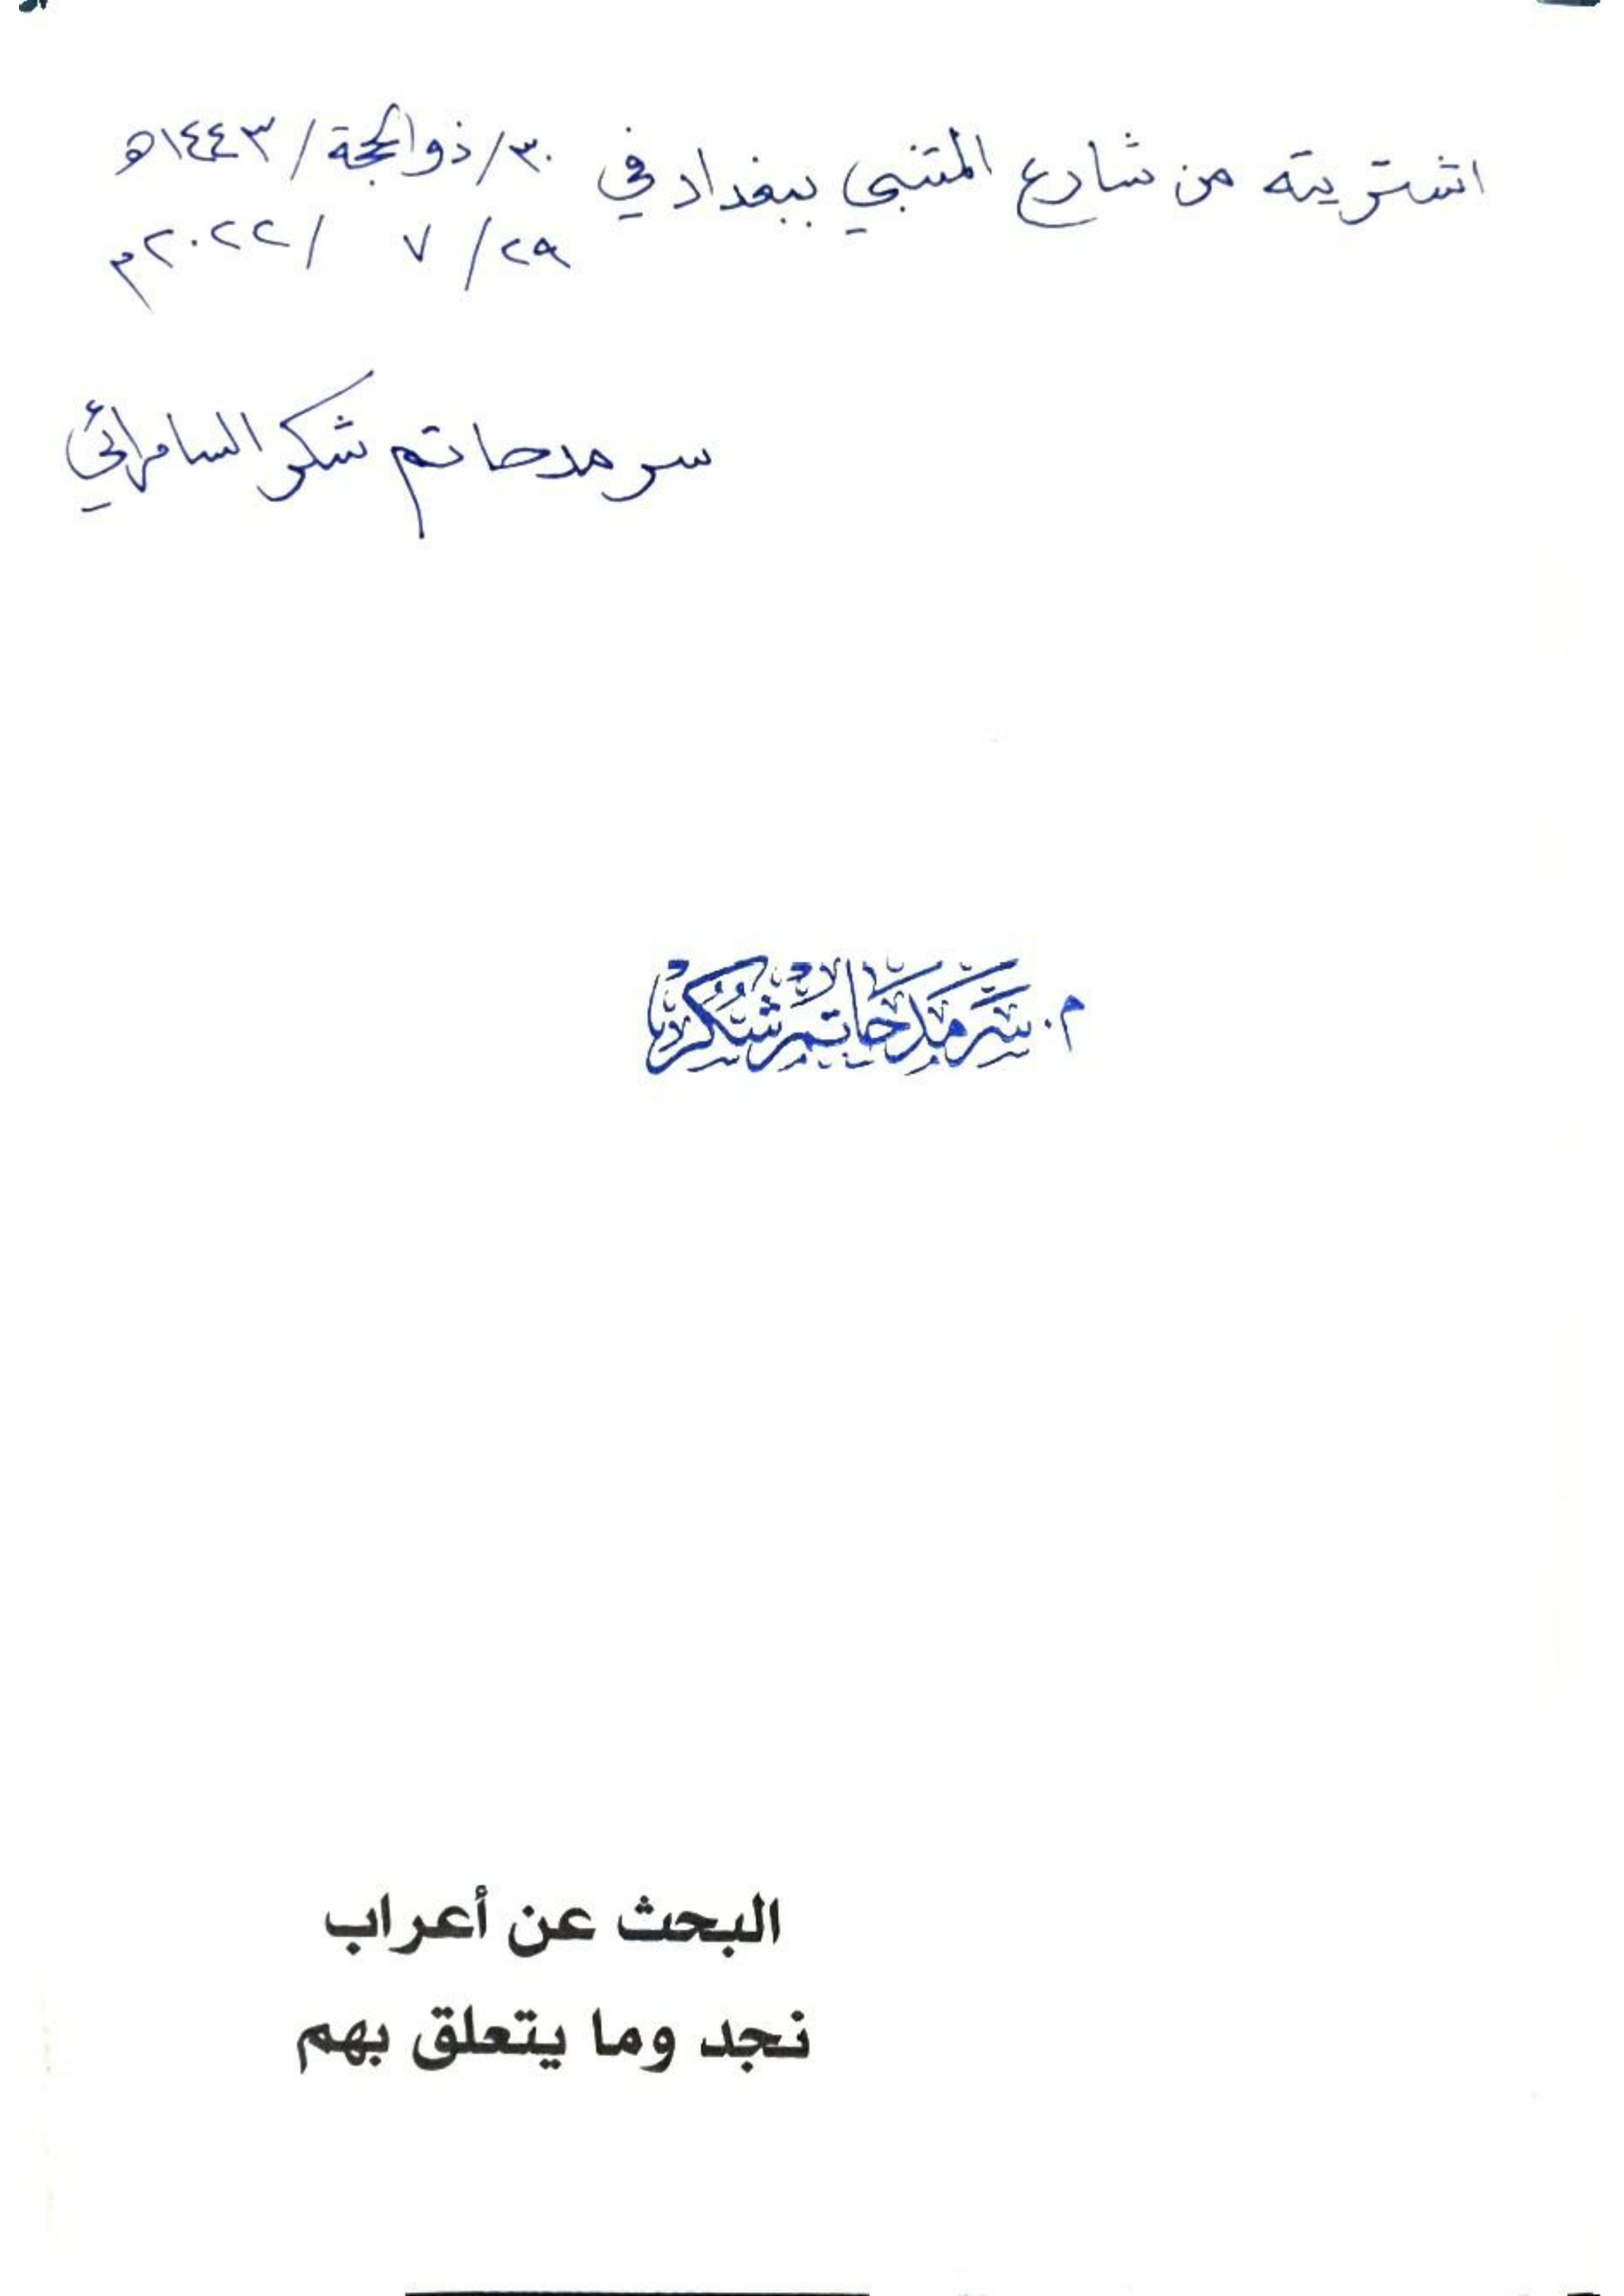 اشتريته من شارع المتنبي ببغداد في ٣٠/ذو الحجة/١٤٤٣هـ
٢٩/ ٧ /٢٠٢٢م
سرمد حاتم شكر السامرائي
م. سرمد حاتم شكر
البحث عن أعراب
نجد وما يتعلق بهم